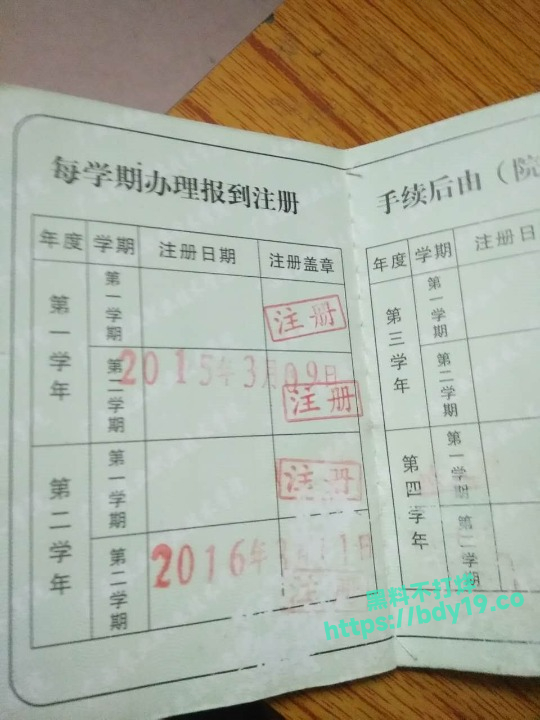 每学期办理报到注册
手续后由（院
年度 学期 注册日期 注册盖章
第一学年 第一学期 注册
第二学期 2015年3月09日 注册
第二学年 第一学期 注册
第二学期 2016年 1日 注册
年度 学期 注册日
第三学年 第一学期
第二学期
第四学年 第一学期
第二学期
黑料不打烊
https://bdy19.co